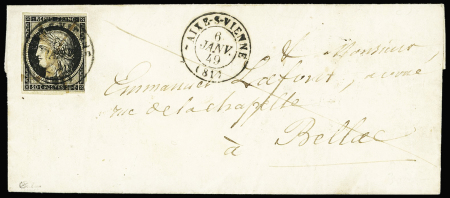 REPUB. FRANC.
AIXE-S-VIENNE
6
JANV.
49
(81)
A Monsieur
Emmanuel Laforest, avoué
rue de la chapelle
à Bellac